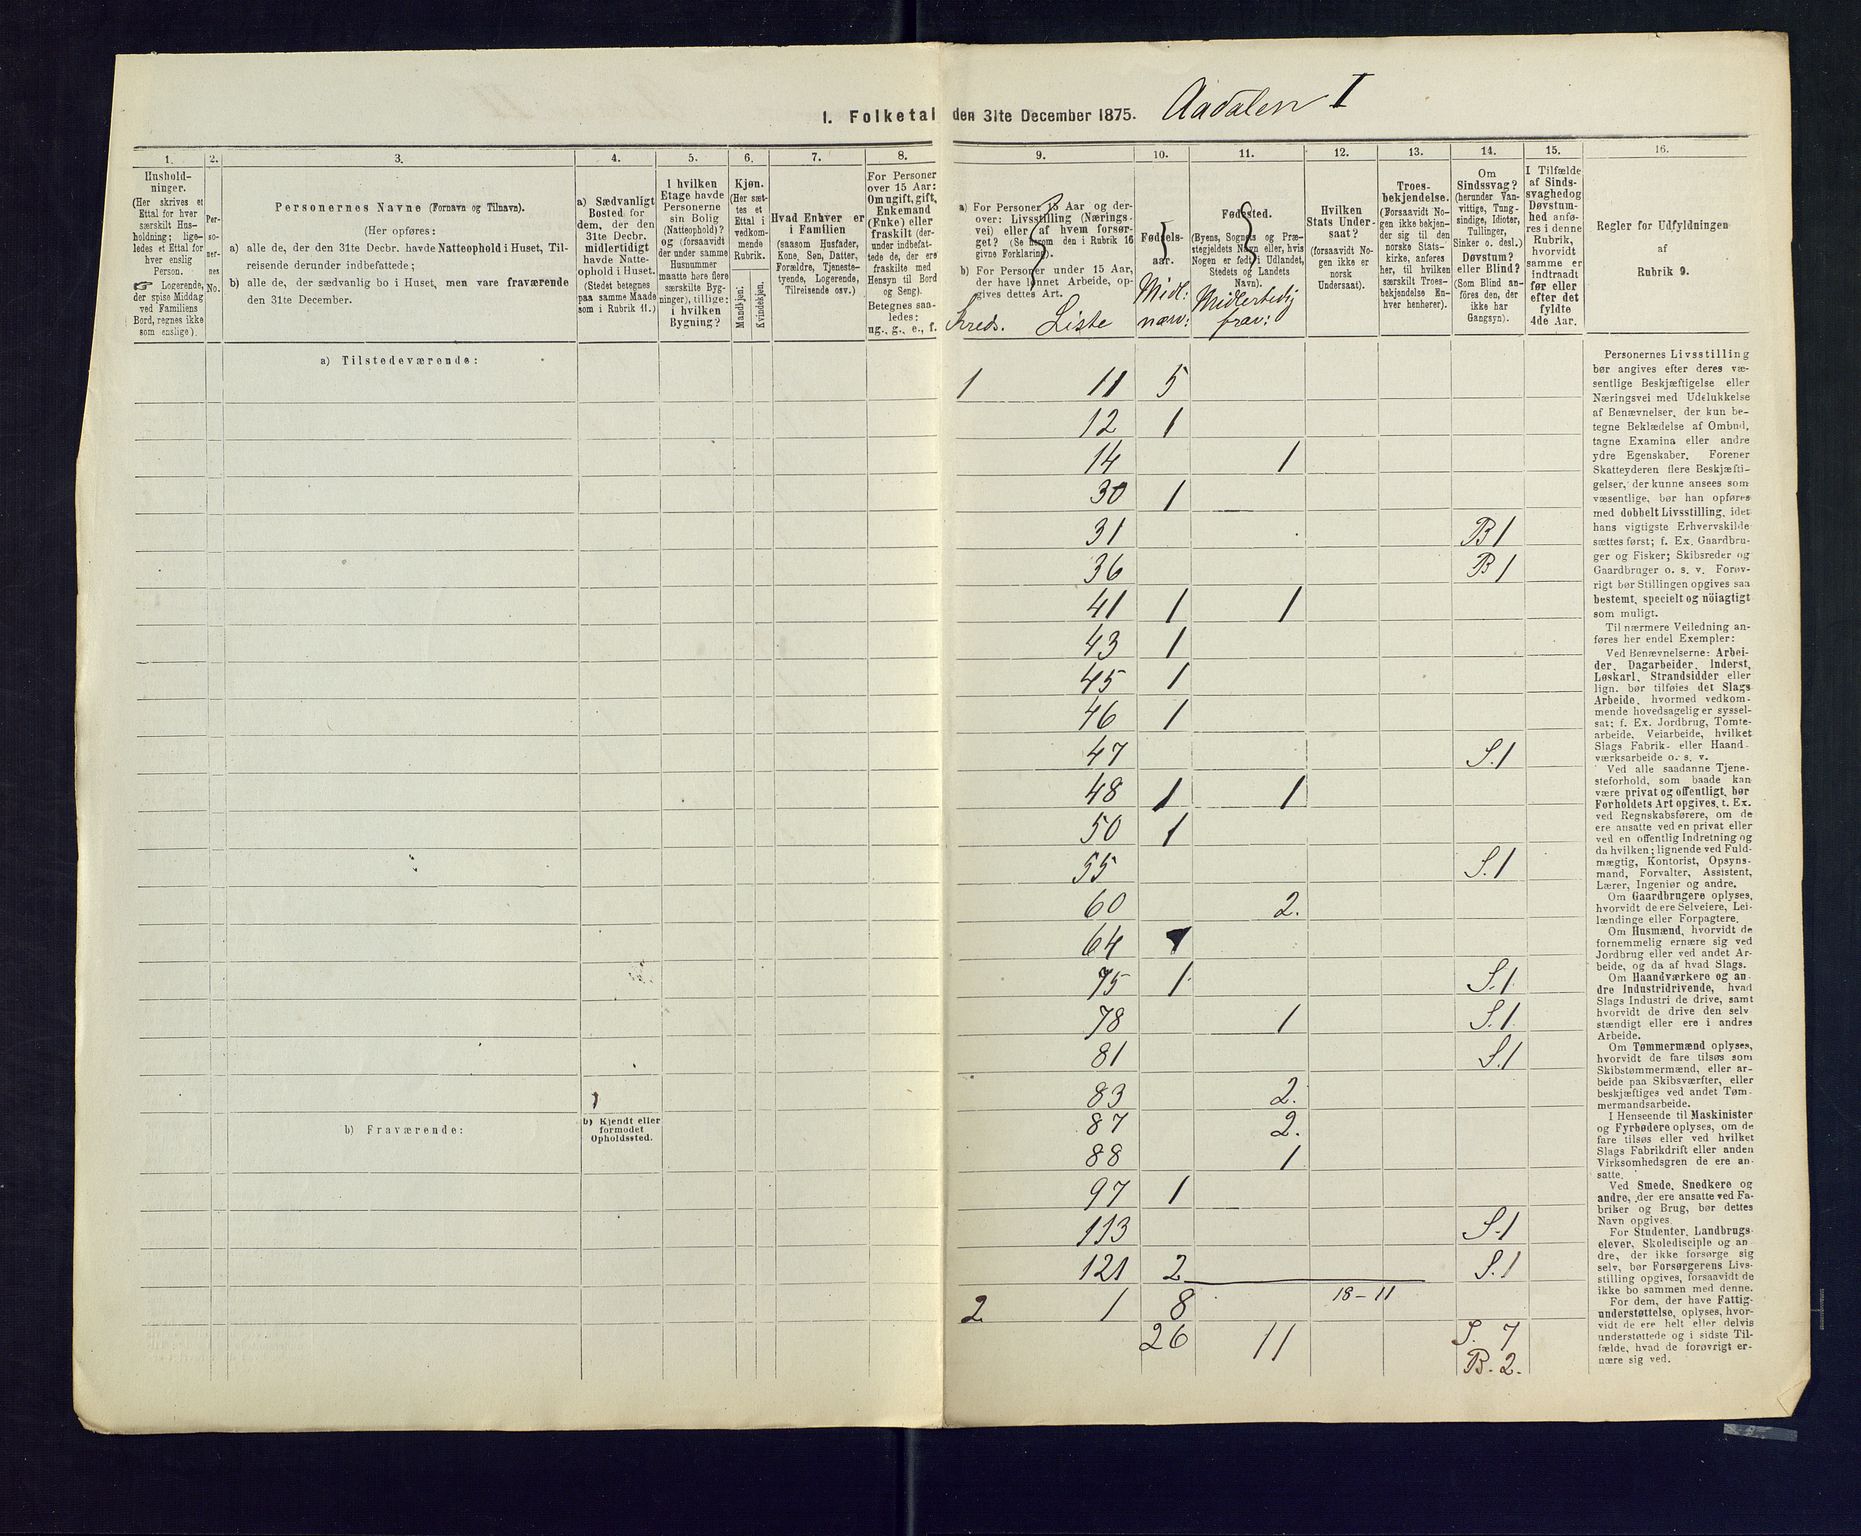 1. Folketal den 31te December 1875. Aadalen I
1.
2.
3.
4.
5.
6.
7.
8.
9.
10.
11.
12.
13.
14.
15.
16.
Hushold-
ninger.
(Her skrives et
Ettal for hver
særskilt Hus-
holdning; lige-
ledes et Ettal for
hver enslig
Person.
☞ Logerende,
der spise Middag
ved Familiens
Bord, regnes ikke
som enslige).
Per-
so-
ner-
nes
No.
Personernes Navne (Fornavn og Tilnavn).
(Her opføres:
a) alle de, der den 31te Decbr. havde Natteophold i Huset, Til-
reisende derunder indbefattede;
b) alle de, der sædvanlig bo i Huset, men vare fraværende
den 31te December.
a) Sædvanligt
Bosted for
dem, der den
31te Decbr.
midlertidigt
havde Natte-
ophold i Huset.
(Stedet betegnes
paa samme Maade
som i Rubrik 11.)
I hvilken
Etage havde
Personerne
sin Bolig
(Natteophold)?
og (forsaavidt
der under samme
Husnummer
maatte høre flere
særskilte Byg-
ninger), tillige:
i hvilken
Bygning?
Kjøn.
(Her sæt-
tes et
Ettal i
vedkom-
mende
Rubrik.
Mandkjøn.
Kvindekjøn.
Hvad Enhver er
i Familien
(saasom Husfader,
Kone, Søn, Datter,
Forældre, Tjeneste-
tyende, Logerende,
Tilreisende osv.)
For Personer
over 15 Aar:
Om ugift, gift,
Enkemand
(Enke) eller
fraskilt (der-
under indbefat-
tede de, der ere
fraskilte med
Hensyn til Bord
og Seng).
Betegnes saa-
ledes:
ug., g., e., f.
a) For Personer 15 Aar og der-
over: Livsstilling (Nærings-
vei) eller af hvem forsør-
get? (Se herom den i Rubrik 16
givne Forklaring).
b) For Personer under 15 Aar,
der have lønnet Arbeide, op-
gives dettes Art.
Kreds. Liste
Fødsels-
aar.
Midl:
nærv:
Fødested.
(Byens, Sognets og Præ-
stegjeldets Navn eller, hvis
Nogen er født i Udlandet,
Stedets og Landets
Navn).
Midlertidig
frav:
Hvilken
Stats Under-
saat?
(forsaavidt No-
gen ikke er
norsk
Undersaat).
Troes-
bekjendelse.
(Forsaavidt No-
gen ikke bekjen-
der sig til den
norske Stats-
kirke, anføres
her, til hvilken
særskilt Troes-
bekjendelse En-
hver henhører).
Om
Sindssvag?
(herunder Van-
vittige, Tung-
sindige, Idioter,
Tullinger,
Sinker o. desl.)
Døvstum?
eller Blind?
(Som Blind an-
føres den, der
ikke har
Gangsyn).
I Tilfælde
af Sinds-
svaghed og
Døvstum-
hed anfø-
res i denne
Rubrik,
hvorvidt
samme er
indtraadt
før eller
efter det
fyldte
4de Aar.
Regler for Udfyldningen
af
Rubrik 9.
a) Tilstedeværende:
1 11 5
12 1
14 1
30 1
31 B 1
36 B 1
41 1 1
43 1
45 1
46 1
47 S. 1
48 1 1
50 1
55 S. 1
60 2.
64 1
75 1 S. 1
78 1 S. 1
81 S. 1
83 2.
87 2.
88 1
97 1
113 S. 1
121 2 S. 1
18 – 11
2. 1 8
26 11 S. 7
B. 2.
b) Fraværende:
b) Kjendt eller
formodet
Opholdssted.
Personernes Livsstilling
bør angives efter deres væ-
sentlige Beskjæftigelse eller
Næringsvei med Udelukkelse
af Benævnelser, der kun be-
tegne Beklædelse af Ombud,
tagne Examina eller andre
ydre Egenskaber. Forener
Skatteyderen flere Beskjæfti-
gelser, der kunne ansees som
væsentlige, bør han opføres
med dobbelt Livsstilling, idet
hans vigtigste Erhvervskilde
sættes først; f. Ex. Gaardbru-
ger og Fisker; Skibsreder og
Gaardbruger o. s. v. Forøv-
rigt bør Stillingen opgives saa
bestemt, specielt og nöiagtigt
som muligt.
Til nærmere Veiledning an-
føres her endel Exempler:
Ved Benævnelserne: Arbei-
der, Dagarbeider, Inderst,
Løskarl, Strandsidder eller
lign. bør tilføies det Slags
Arbeide, hvormed vedkom-
mende hovedsagelig er syssel-
sat; f. Ex. Jordbrug, Tomte-
arbeide, Veiarbeide, hvilket
Slags Fabrik- eller Haand-
værksarbeide o. s. v.
Ved alle saadanne Tjene-
steforhold, som baade kan
være privat og offentligt, bør
Forholdets Art opgives, t. Ex.
ved Regnskabsførere, om de
ere ansatte ved en privat eller
ved en offentlig Indretning og
da hvilken; lignende ved Fuld-
mægtig, Kontorist, Opsyns-
mand, Forvalter, Assistent,
Lærer, Ingeniør og andre.
Om Gaardbrugere oplyses,
hvorvidt de ere Selveiere, Lei-
lændinge eller Forpagtere.
Om Husmænd, hvorvidt de
fornemmelig ernære sig ved
Jordbrug eller ved andet Ar-
beide, og da af hvad Slags.
Om Haandværkere og an-
dre Industridrivende, hvad
Slags Industri de drive, samt
hvorvidt de drive den selv-
stændigt eller ere i andres
Arbeide.
Om Tømmermænd oplyses,
hvorvidt de fare tilsøs som
Skibstømmermænd, eller ar-
beide paa Skibsværfter, eller
beskjæftiges ved andet Tøm-
mermandsarbeide.
I Henseende til Maskinister
og Fyrbødere oplyses, om de
fare tilsøs eller ved hvilket
Slags Fabrikdrift eller anden
Virksomhedsgren de ere an-
satte.
Ved Smede, Snedkere og
andre, der ere ansatte ved Fa-
briker og Brug, bør dettes
Navn opgives.
For Studenter, Landbrugs-
elever, Skoledisciple og an-
dre, der ikke forsørge sig
selv, bør Forsørgerens Livs-
stilling opgives, forsaavidt de
ikke bo sammen med denne.
For dem, der have Fattig-
understøttelse, oplyses, hvor-
vidt de ere helt eller delvis
understøttede og i sidste Til-
fælde, hvad de forøvrigt er-
nære sig ved.